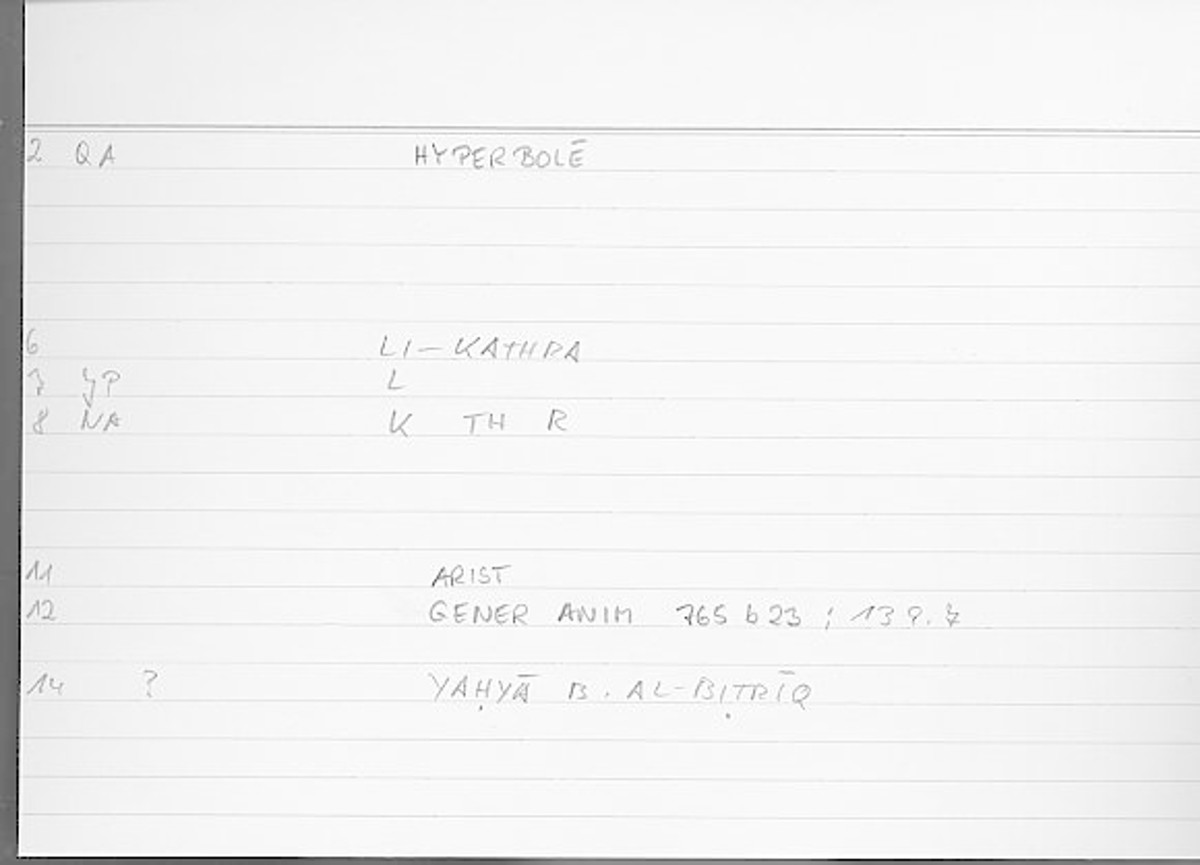 2 QA HYPERBOLĒ
6 LI-KATHRA
7 JP L
8 NA K TH R
11 ARIST
12 GENER ANIM 765 b 23 ; 139.7
14 ? YAḤYĀ B. AL-BIṬRĪQ